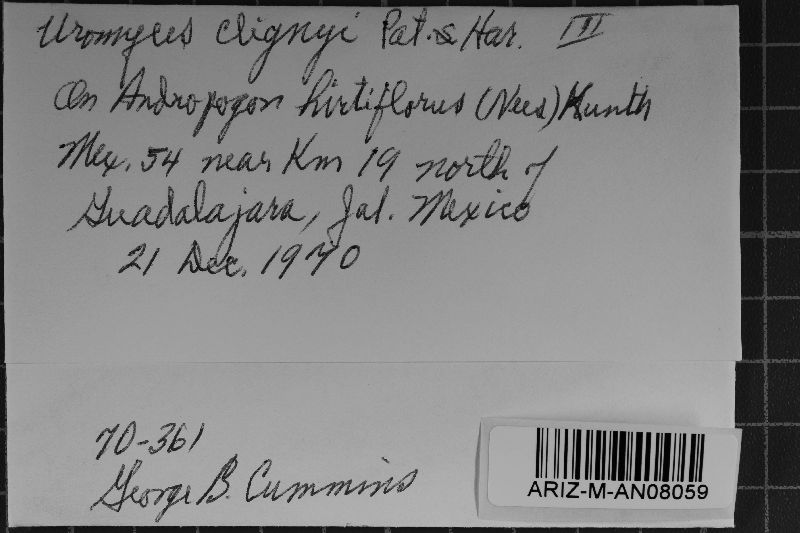 Uromyces clignyi Pat. & Har. III
On Andropogon hirtiflorus (Nees) Kunth
Mex. 54 near Km 19 north of
Guadalajara, Jal. Mexico
21 Dec. 1970
70-361
George B. Cummins
ARIZ-M-AN08059